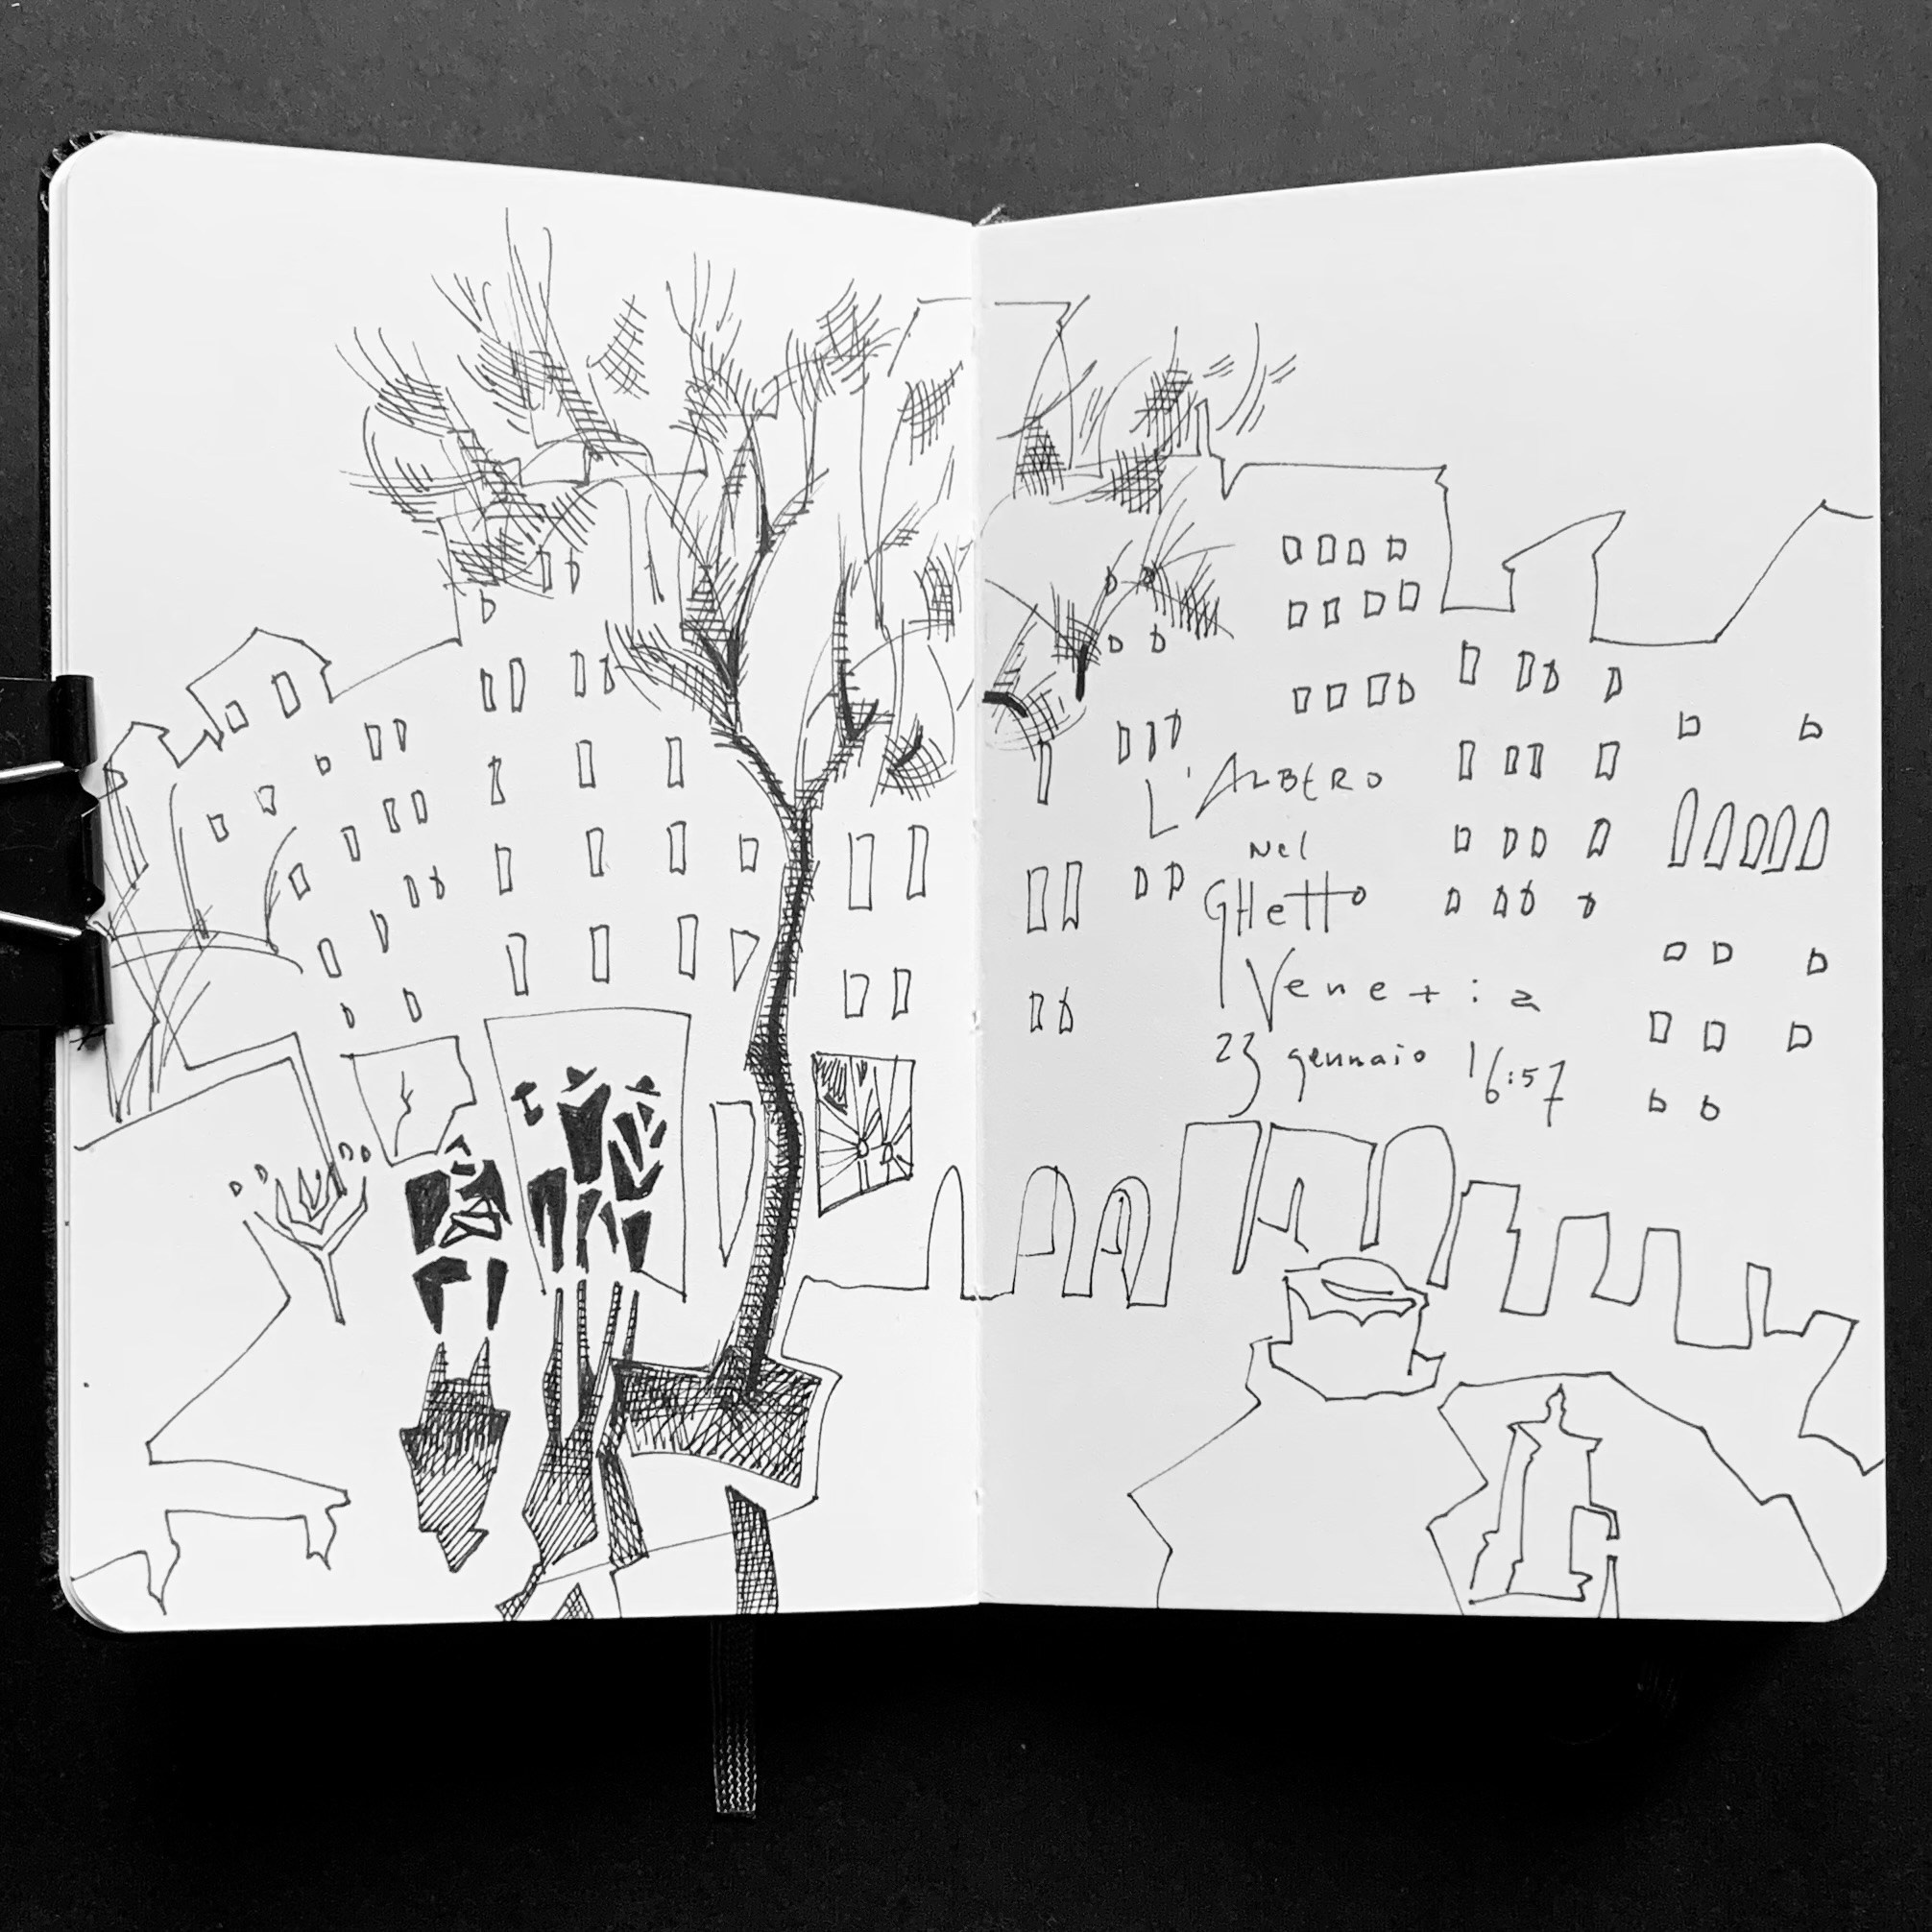 L'ALBERO
Nel
GHetto
Venetia
23 gennaio 16:57